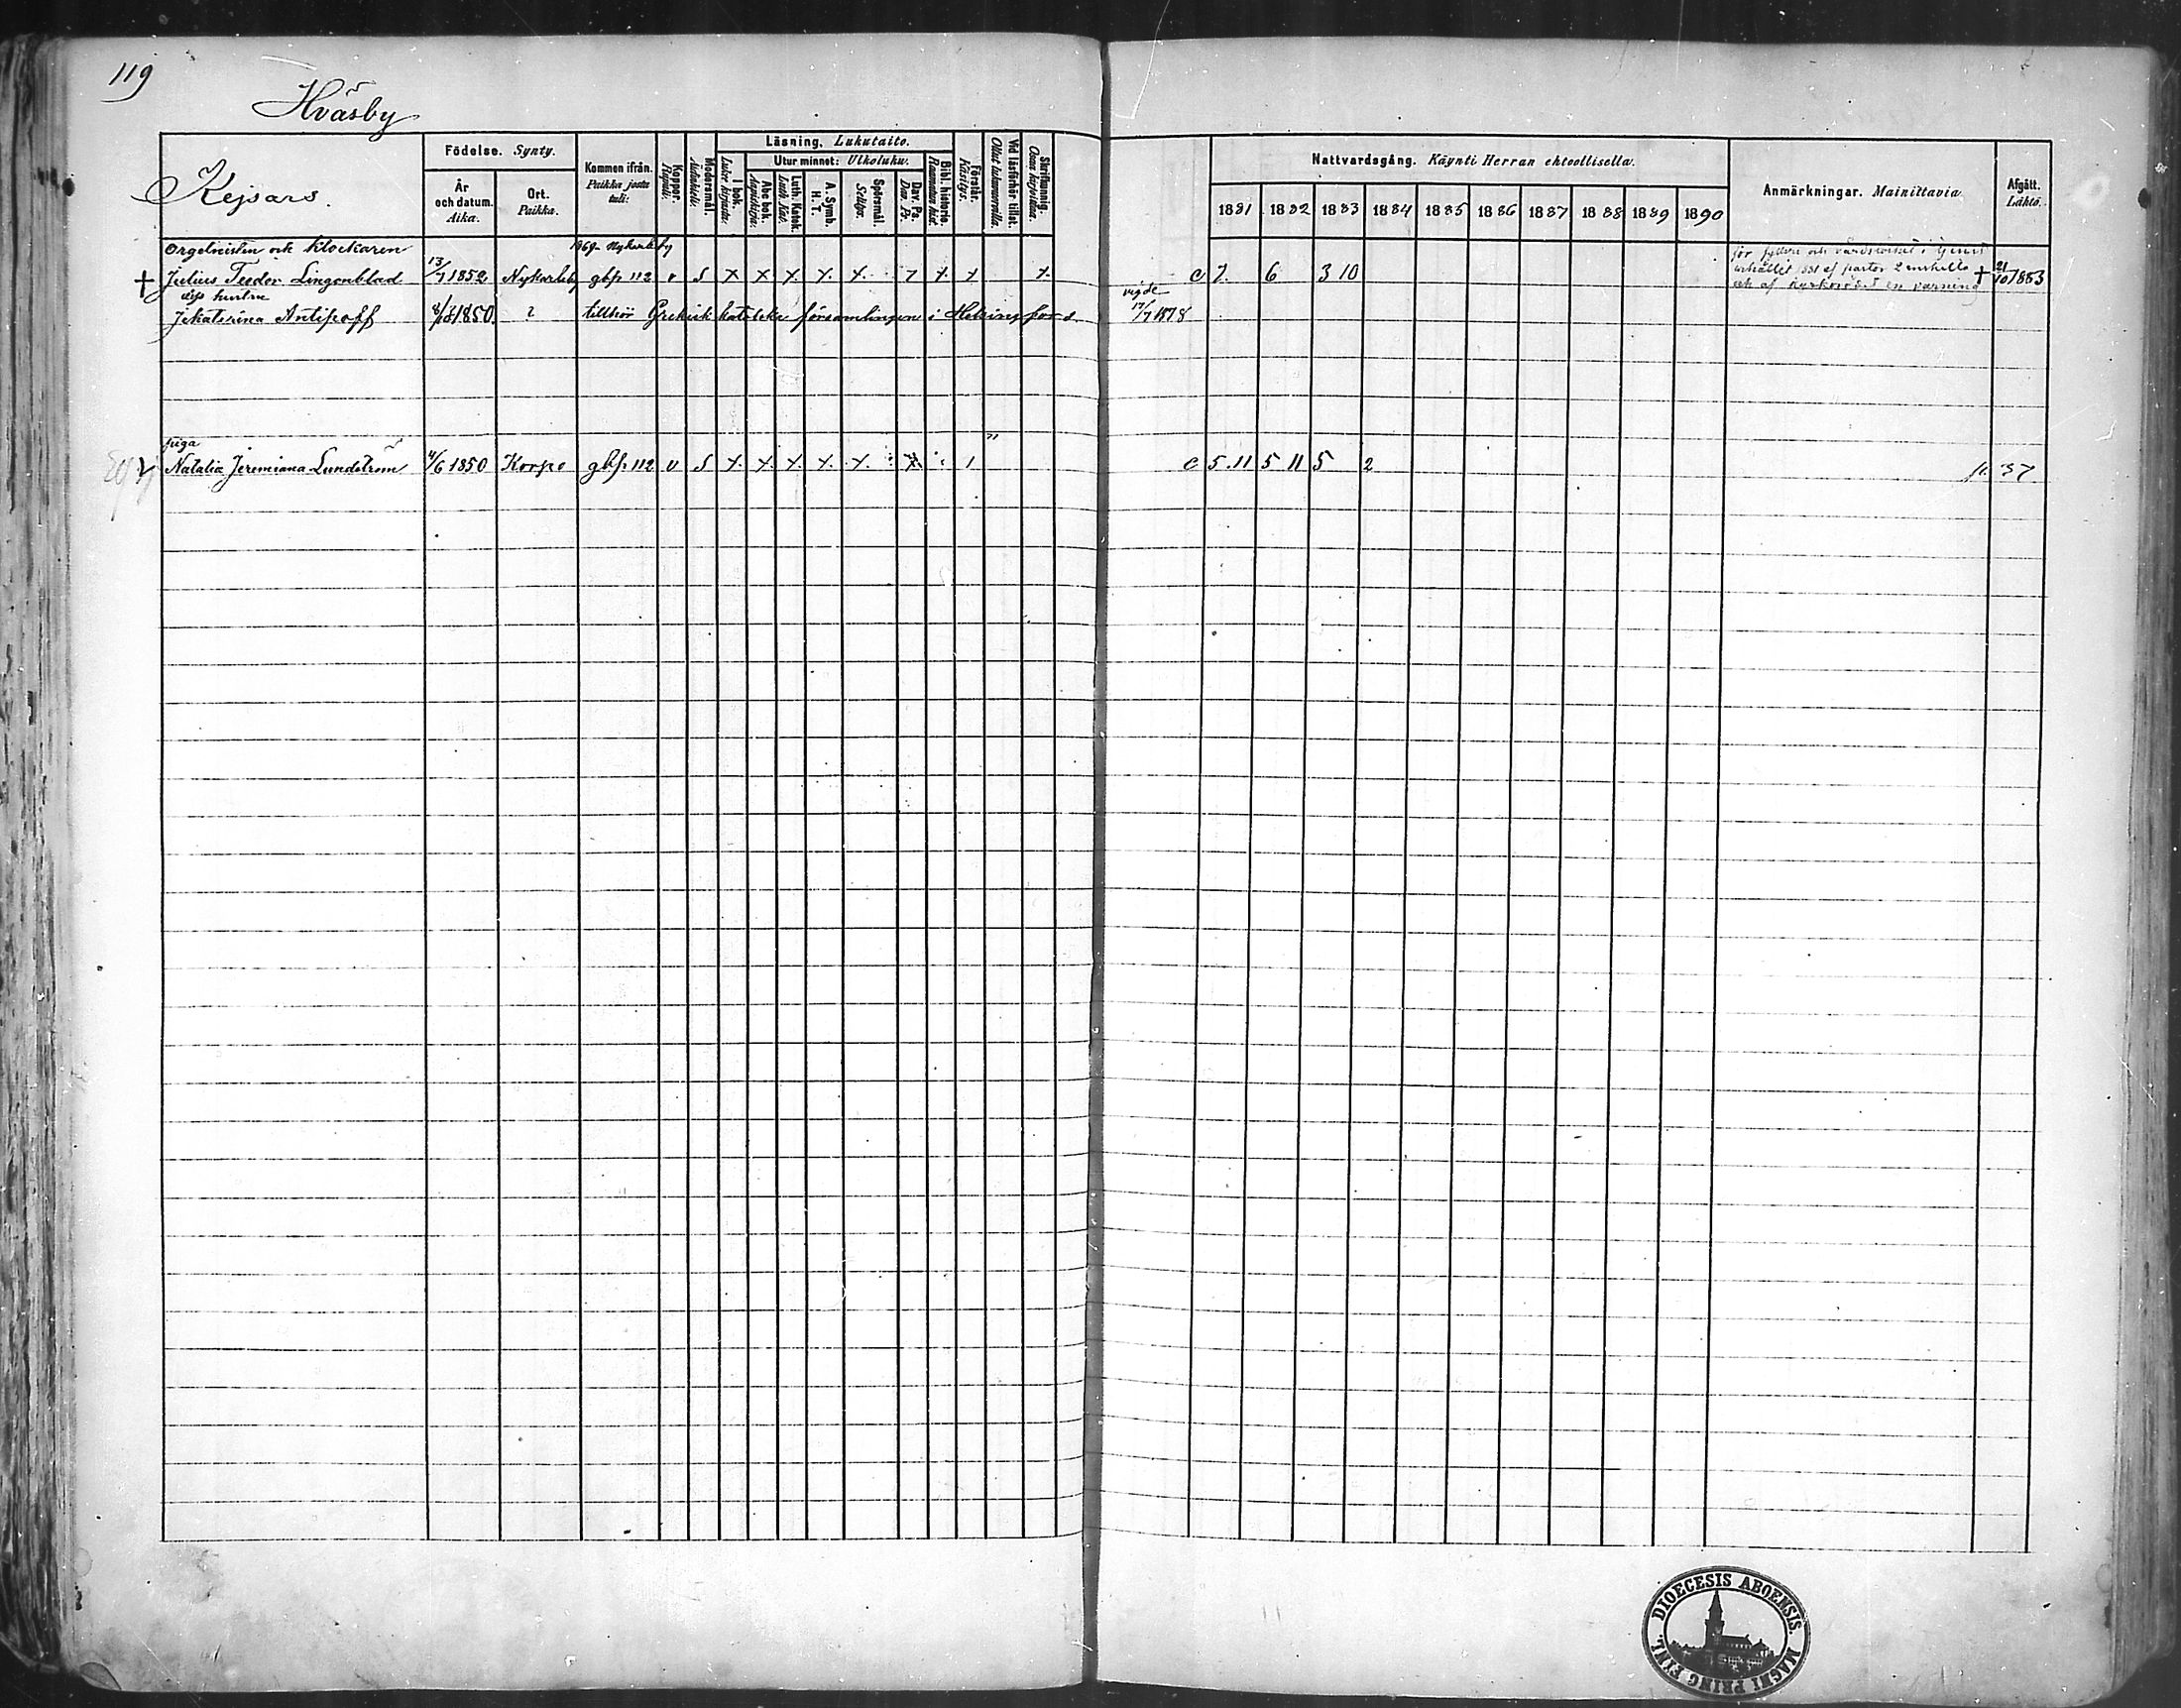 119
Hväsby
Kejsars.
Födelse. Synty.
År och datum. Aika.
Ort. Paikka.
Kommen ifrån. Paikka josta tuli:
Koppor. Rupuli.
Modersmål. Äidinkieli.
Läsning. Lukutaito.
I bok.
Utur minnet: Ulkoluku.
Abc bok. Aapiskirja.
Luth. Katek. Luth. Kat.
A. Symb. H. T.
Spörsmål. Selitys.
Dav. Ps. Dav. Ps.
Bibl. historie. Raamatun hist.
Förstår. Käsitys.
Vid läsförhör tillst. Ollut lukuvuorolla.
Skrifkunnig. Osaa kirjoittaa.
Nattvardsgång. Käynti Herran ehtoollisella.
1881 1882 1883 1884 1885 1886 1887 1888 1889 1890
Anmärkningar. Mainittavia.
Afgått. Lähtö.
Orgelnisten och klockaren 1869 Nykarleby
† Julius Teodor Lingonblad 13/7 1852 Nykarleby gbp 112 v S x x x x x 7 x x x c 7. 6 3 10 † 21/10 1883
dess hustru vigde
Jekaterina Antipoff 8/8 1850 ? tillhör Grekisk katolska församlingen i Helsingfors 17/7 1878
för fylleri och
erhållit af pastor
och af kyrkorådet en varning
piga
Natalia Jeremiana Lundström 4/6 1850 Korpo gbp 112 v S x x x x x x 1 c 5.11 5 11 5 2 37
DIOECESIS ABOENSIS. MAGNI PRINC. FYNL.